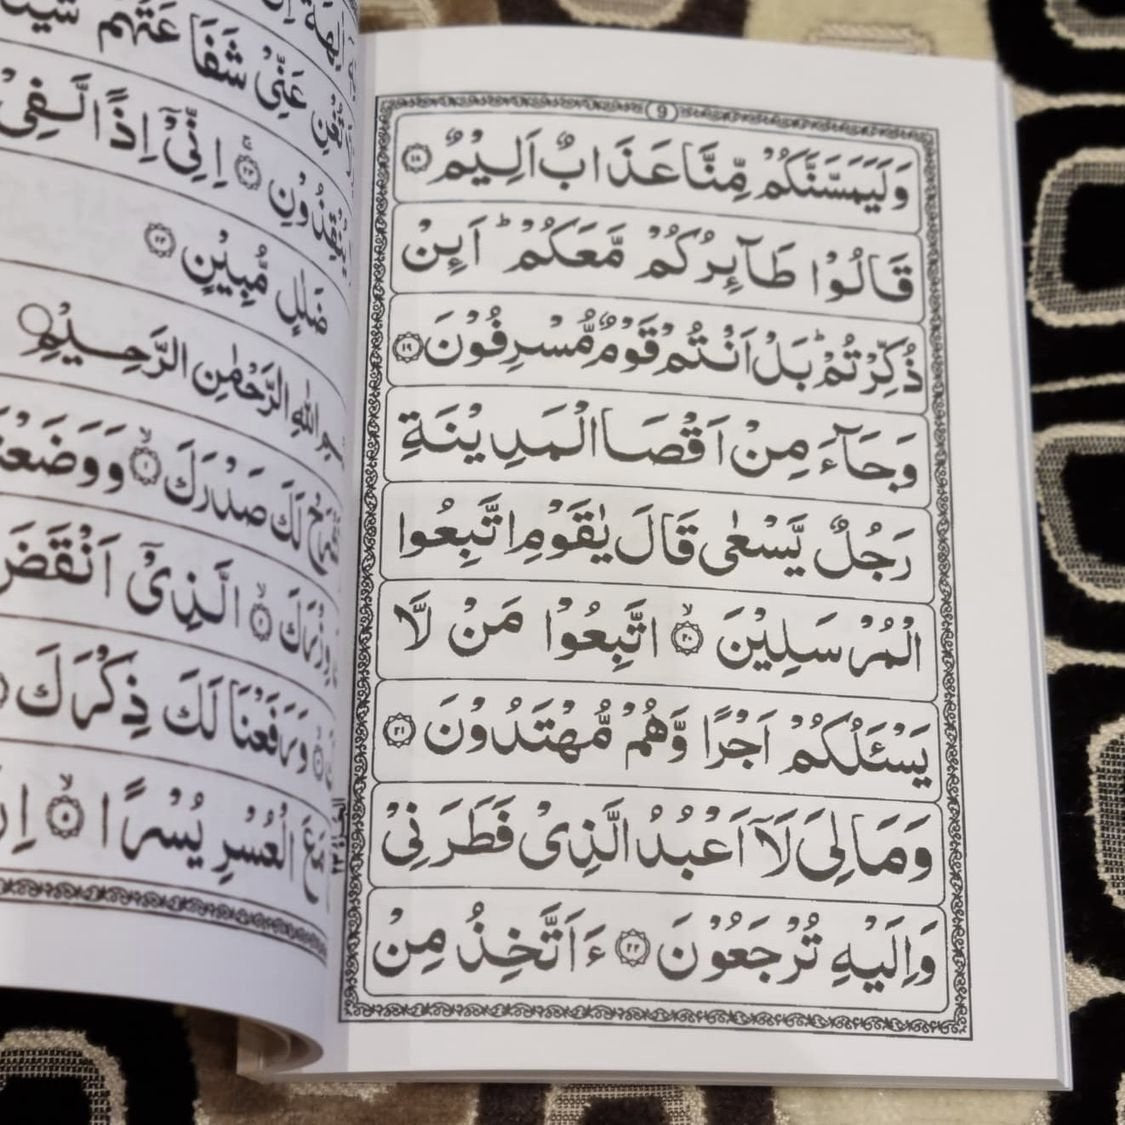 9
وَلَيَمَسَّنَّكُمْ مِّنَّا عَذَابٌ اَلِيْمٌ ۝١٨
قَالُوْا طَآئِرُكُمْ مَّعَكُمْ ؕ اَئِنْ
ذُكِّرْتُمْ ؕ بَلْ اَنْتُمْ قَوْمٌ مُّسْرِفُوْنَ ۝١٩
وَجَآءَ مِنْ اَقْصَا الْمَدِيْنَةِ
رَجُلٌ يَّسْعٰى قَالَ يٰقَوْمِ اتَّبِعُوا
الْمُرْسَلِيْنَ ۝٢٠ۙ اتَّبِعُوْا مَنْ لَّا
يَسْـَٔلُكُمْ اَجْرًا وَّهُمْ مُّهْتَدُوْنَ ۝٢١
وَمَا لِىَ لَآ اَعْبُدُ الَّذِىْ فَطَرَنِىْ
وَاِلَيْهِ تُرْجَعُوْنَ ۝٢٢ ءَاَتَّخِذُ مِنْ
عَنِّىْ شَفَاعَتُهُمْ
يُنْقِذُوْنِ ۝٢٣ۚ اِنِّىْٓ اِذًا لَّفِىْ
ضَلٰلٍ مُّبِيْنٍ ۝٢٤
اللهِ الرَّحْمٰنِ الرَّحِيْمِ
لَكَ صَدْرَكَ ۝١ۙ وَوَضَعْنَا
وِزْرَكَ ۝٢ۙ الَّذِىْٓ اَنْقَضَ
وَرَفَعْنَا لَكَ ذِكْرَكَ
مَعَ الْعُسْرِ يُسْرًا ۝٥ۙ اِنَّ